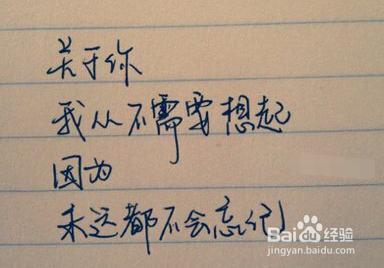 关于你
我从不需要想起
因为
永远都不会忘记
Baidu经验
jingyan.baidu.com